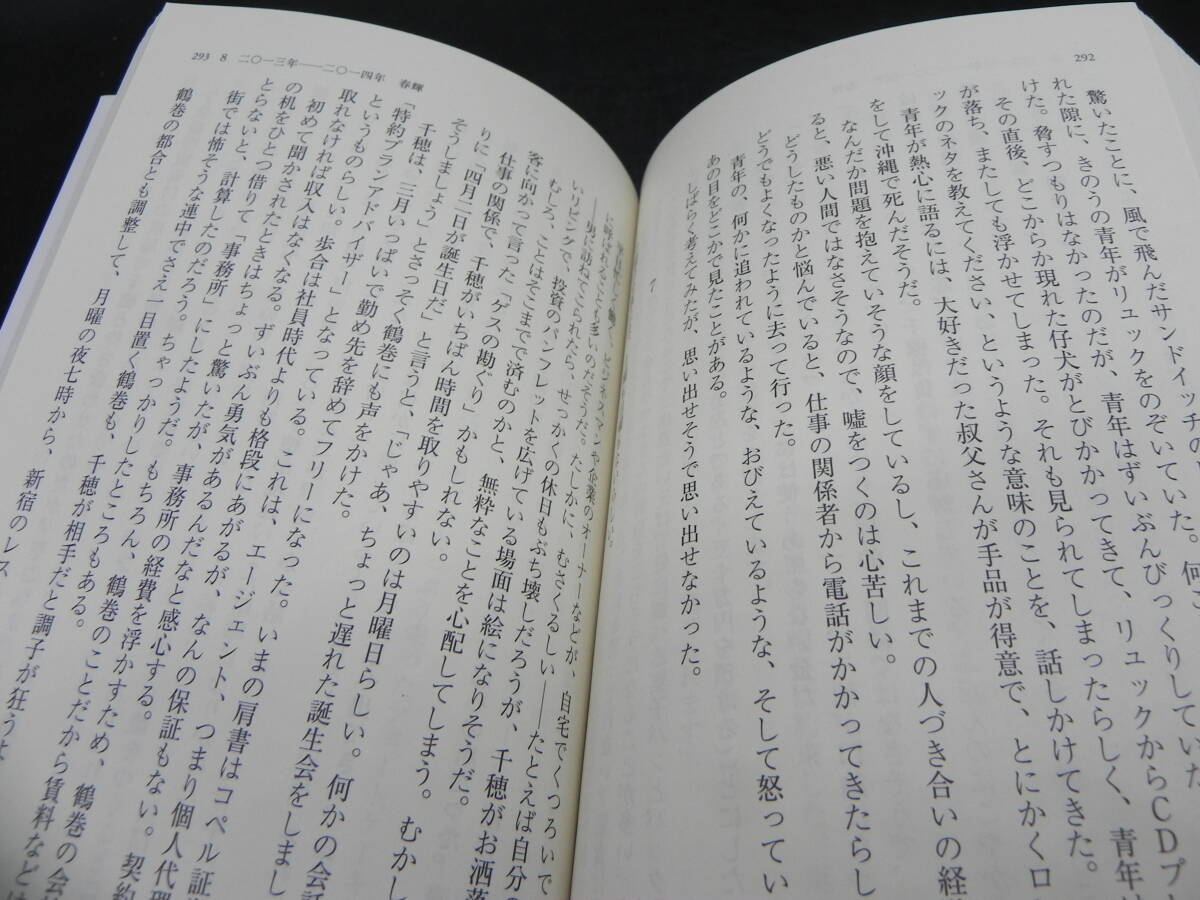 292
驚いたことに、風で飛んだサンドイッチの
れた隙に、きのうの青年がリュックをのぞいていた。何
けた。脅すつもりはなかったのだが、青年はずいぶんびっくりしていた
その直後、どこからか現れた仔犬がとびかかってきて、リュックからCDプ
が落ち、またしても浮かせてしまった。それも見られてしまったらしく、青年は
ックのネタを教えてください、というような意味のことを、話しかけてきた。
青年が熱心に語るには、大好きだった叔父さんが手品が得意で、とにかくロ
をして沖縄で死んだそうだ。
なんだか問題を抱えていそうな顔をしているし、これまでの人づき合いの経
ると、悪い人間ではなさそうなので、嘘をつくのは心苦しい。
どうしたものかと悩んでいると、仕事の関係者から電話がかかってきたらし
どうでもよくなったように去って行った。
青年の、何かに追われているような、おびえているような、そして怒ってい
あの目をどこかで見たことがある。
しばらく考えてみたが、思い出せそうで思い出せなかった。
293 8 二〇一三年――二〇一四年 春輝
に呼ばれることも多いのだそうだ。たしかに、むさくるしい――たとえば自分
――男に訪ねてこられたら、せっかくの休日もぶち壊しだろうが、千穂がお洒落
いリビングで、投資のパンフレットを広げている場面は絵になりそうだ。
むしろ、ことはそこまでで済むのかと、無粋なことを心配してしまう。 むかし
客に向かって言った「ゲスの勘ぐり」かもしれない。
仕事の関係で、千穂がいちばん時間を取りやすいのは月曜日らしい。何かの会話
りに「四月二日が誕生日だ」と言うと、「じゃあ、ちょっと遅れた誕生会をしまし
そうしましょう」とさっそく鶴巻にも声をかけた。
千穂は、三月いっぱいで勤め先を辞めてフリーになった。いまの肩書はコペル証
「特約プランアドバイザー」となっている。これは、エージェント、つまり個人代理
というものらしい。歩合は社員時代よりも格段にあがるが、なんの保証もない。契約
取れなければ収入はなくなる。ずいぶん勇気があるんだなと感心する。
初めて聞かされたときはちょっと驚いたが、事務所の経費を浮かすため、鶴巻の会
の机をひとつ借りて「事務所」にしたようだ。もちろん、鶴巻のことだから賃料などは
とらないと、計算したのだろう。ちゃっかりしたところもある。
街では怖そうな連中でさえ一目置く鶴巻も、千穂が相手だと調子が狂うよ
鶴巻の都合とも調整して、月曜の夜七時から、新宿のレス